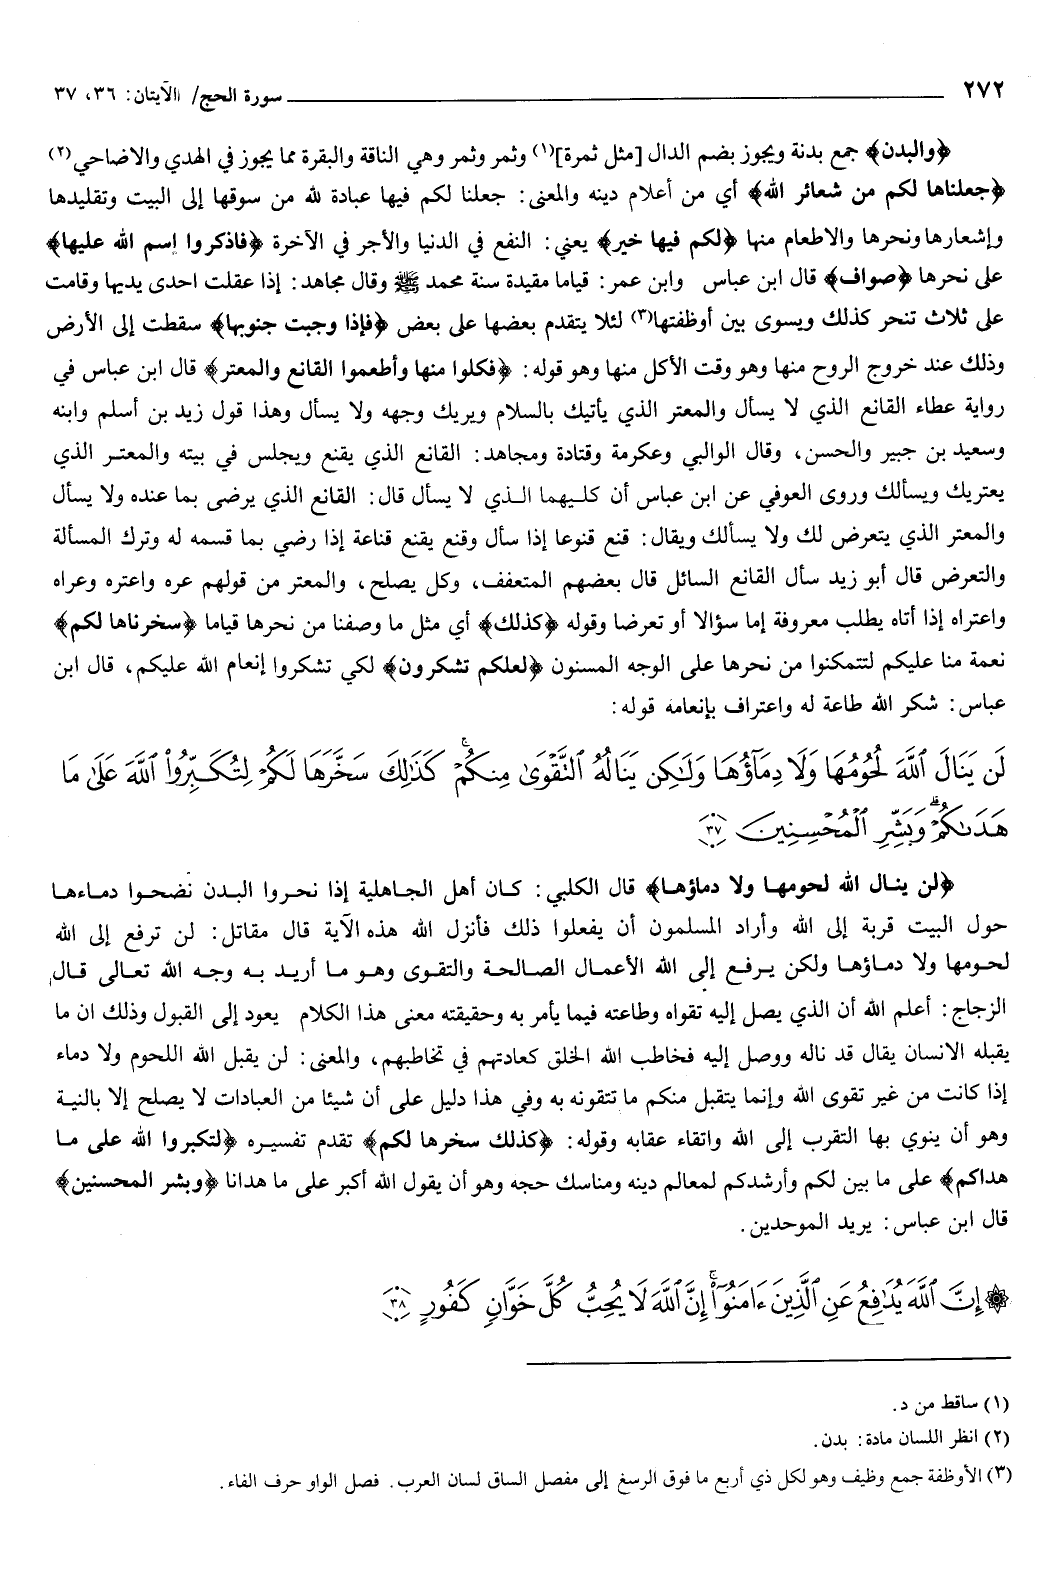 ٢٧٢ سورة الحج/ الآيتان: ٣٦، ٣٧
﴿والبدن﴾ جمع بدنة ويجوز بضم الدال [مثل ثمرة](١) وثمر وثمر وهي الناقة والبقرة مما يجوز في الهدي والاضاحي(٢)
﴿جعلناها لكم من شعائر الله﴾ أي من أعلام دينه والمعنى: جعلنا لكم فيها عبادة لله من سوقها إلى البيت وتقليدها
وإشعارها ونحرها والاطعام منها ﴿لكم فيها خير﴾ يعني: النفع في الدنيا والأجر في الآخرة ﴿فاذكروا إسم الله عليها﴾
على نحرها ﴿صواف﴾ قال ابن عباس وابن عمر: قياما مقيدة سنة محمد ﷺ وقال مجاهد: إذا عقلت احدى يديها وقامت
على ثلاث تنحر كذلك ويسوى بين أوظفتها(٣) لئلا يتقدم بعضها على بعض ﴿فإذا وجبت جنوبها﴾ سقطت إلى الأرض
وذلك عند خروج الروح منها وهو وقت الأكل منها وهو قوله: ﴿فكلوا منها وأطعموا القانع والمعتر﴾ قال ابن عباس في
رواية عطاء القانع الذي لا يسأل والمعتر الذي يأتيك بالسلام ويريك وجهه ولا يسأل وهذا قول زيد بن أسلم وابنه
وسعيد بن جبير والحسن، وقال الوالبي وعكرمة وقتادة ومجاهد: القانع الذي يقنع ويجلس في بيته والمعتر الذي
يعتريك ويسألك وروى العوفي عن ابن عباس أن كليهما الذي لا يسأل قال: القانع الذي يرضى بما عنده ولا يسأل
والمعتر الذي يتعرض لك ولا يسألك ويقال: قنع قنوعا إذا سأل وقنع يقنع قناعة إذا رضي بما قسمه له وترك المسألة
والتعرض قال أبو زيد سأل القانع السائل قال بعضهم المتعفف، وكل يصلح، والمعتر من قولهم عره واعتره وعراه
واعتراه إذا أتاه يطلب معروفة إما سؤالا أو تعرضا وقوله ﴿كذلك﴾ أي مثل ما وصفنا من نحرها قياما ﴿سخرناها لكم﴾
نعمة منا عليكم لتتمكنوا من نحرها على الوجه المسنون ﴿لعلكم تشكرون﴾ لكي تشكروا إنعام الله عليكم، قال ابن
عباس: شكر الله طاعة له واعتراف بإنعامه قوله:
لَن يَنَالَ ٱللَّهَ لُحُومُهَا وَلَا دِمَآؤُهَا وَلَٰكِن يَنَالُهُ ٱلتَّقْوَىٰ مِنكُمْ ۚ كَذَٰلِكَ سَخَّرَهَا لَكُمْ لِتُكَبِّرُوا۟ ٱللَّهَ عَلَىٰ مَا
هَدَىٰكُمْ ۗ وَبَشِّرِ ٱلْمُحْسِنِينَ ٣٧
﴿لن ينال الله لحومها ولا دماؤها﴾ قال الكلبي: كان أهل الجاهلية إذا نحروا البدن نضحوا دماءها
حول البيت قربة إلى الله وأراد المسلمون أن يفعلوا ذلك فأنزل الله هذه الآية قال مقاتل: لن ترفع إلى الله
لحومها ولا دماؤها ولكن يرفع إلى الله الأعمال الصالحة والتقوى وهو ما أريد به وجه الله تعالى قال
الزجاج: أعلم الله أن الذي يصل إليه تقواه وطاعته فيما يأمر به وحقيقته معنى هذا الكلام يعود إلى القبول وذلك ان ما
يقبله الانسان يقال قد ناله ووصل إليه فخاطب الله الخلق كعادتهم في تخاطبهم، والمعنى: لن يقبل الله اللحوم ولا دماء
إذا كانت من غير تقوى الله وإنما يتقبل منكم ما تتقونه به وفي هذا دليل على أن شيئا من العبادات لا يصلح إلا بالنية
وهو أن ينوي بها التقرب إلى الله واتقاء عقابه وقوله: ﴿كذلك سخرها لكم﴾ تقدم تفسيره ﴿لتكبروا الله على ما
هداكم﴾ على ما بين لكم وأرشدكم لمعالم دينه ومناسك حجه وهو أن يقول الله أكبر على ما هدانا ﴿وبشر المحسنين﴾
قال ابن عباس: يريد الموحدين.
۞ إِنَّ ٱللَّهَ يُدَٰفِعُ عَنِ ٱلَّذِينَ ءَامَنُوٓا۟ ۗ إِنَّ ٱللَّهَ لَا يُحِبُّ كُلَّ خَوَّانٍ كَفُورٍ ٣٨
(١) ساقط من د.
(٢) انظر اللسان مادة: بدن.
(٣) الأوظفة جمع وظيف وهو لكل ذي أربع ما فوق الرسغ إلى مفصل الساق لسان العرب. فصل الواو حرف الفاء.